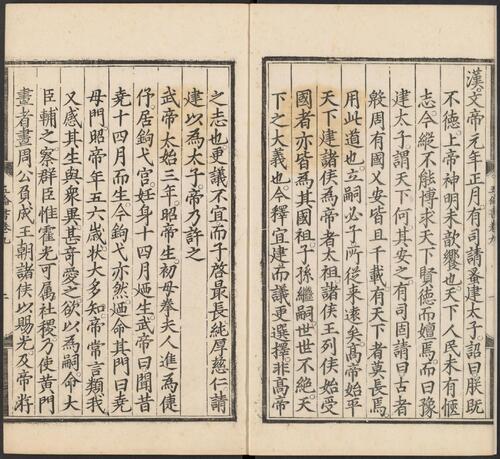 漢。文帝元年正月。有司請蚤建太子。詔曰朕既
不德。上帝神明未歆饗也。天下人民未有愜
志。今縱不能博求天下賢德而嬗焉。而曰豫
建太子。謂天下何。其安之。有司固請曰古者
殷周有國乂安皆且千載。有天下者莫長焉。
用此道也。立嗣必子所從來遠矣。高帝始平
天下。建諸侯。為帝者太祖。諸侯王列侯始受
國者亦皆為其國祖。子孫繼嗣。世世不絕。天
下之大義也。今釋宜建而議更選擇。非高帝
之志也。更議不宜。而子啓最長純厚慈仁。請
建以為太子。帝乃許之。
武帝太始三年。昭帝生。初母拳夫人進為倢
伃。居鉤弋宮。妊身十四月廼生。武帝曰聞昔
堯十四月而生。今鉤弋亦然。廼命其門曰堯
母門。昭帝年五六歲。狀大多知。帝常言類我。
又感其生與衆異。甚奇愛之。欲以為嗣。命大
臣輔之。察群臣惟霍光可屬社稷。乃使黃門
畫者畫周公負成王朝諸侯以賜光。及帝將
五倫書卷九